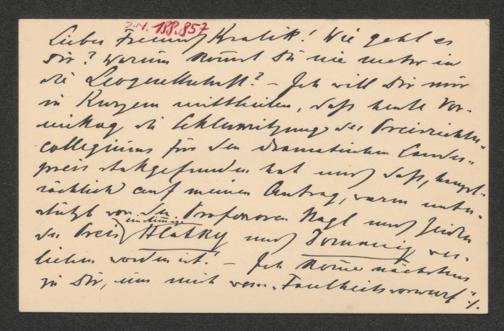 Z.N. 188.857
Lieber Freund Kralik! Wie geht es
Dir? Warum kommst Du nie mehr in
die Leogesellschaft? – Ich will Dir nur
in Kurzem mittheilen, daß heute Vor-
mittag die Schlußsitzung des Preisrichter-
collegiums für den dramatischen Landes-
preis stattgefunden hat und daß, haupt-
sächlich auf meinen Antrag, warm unter-
stützt von den Professoren Nagl und
einstimmig
der Preis Hlatky und Domanig ver-
liehen worden ist. – Ich komme nächstens
zu Dir, um mich vom Faulheitsvorwurf ·/.